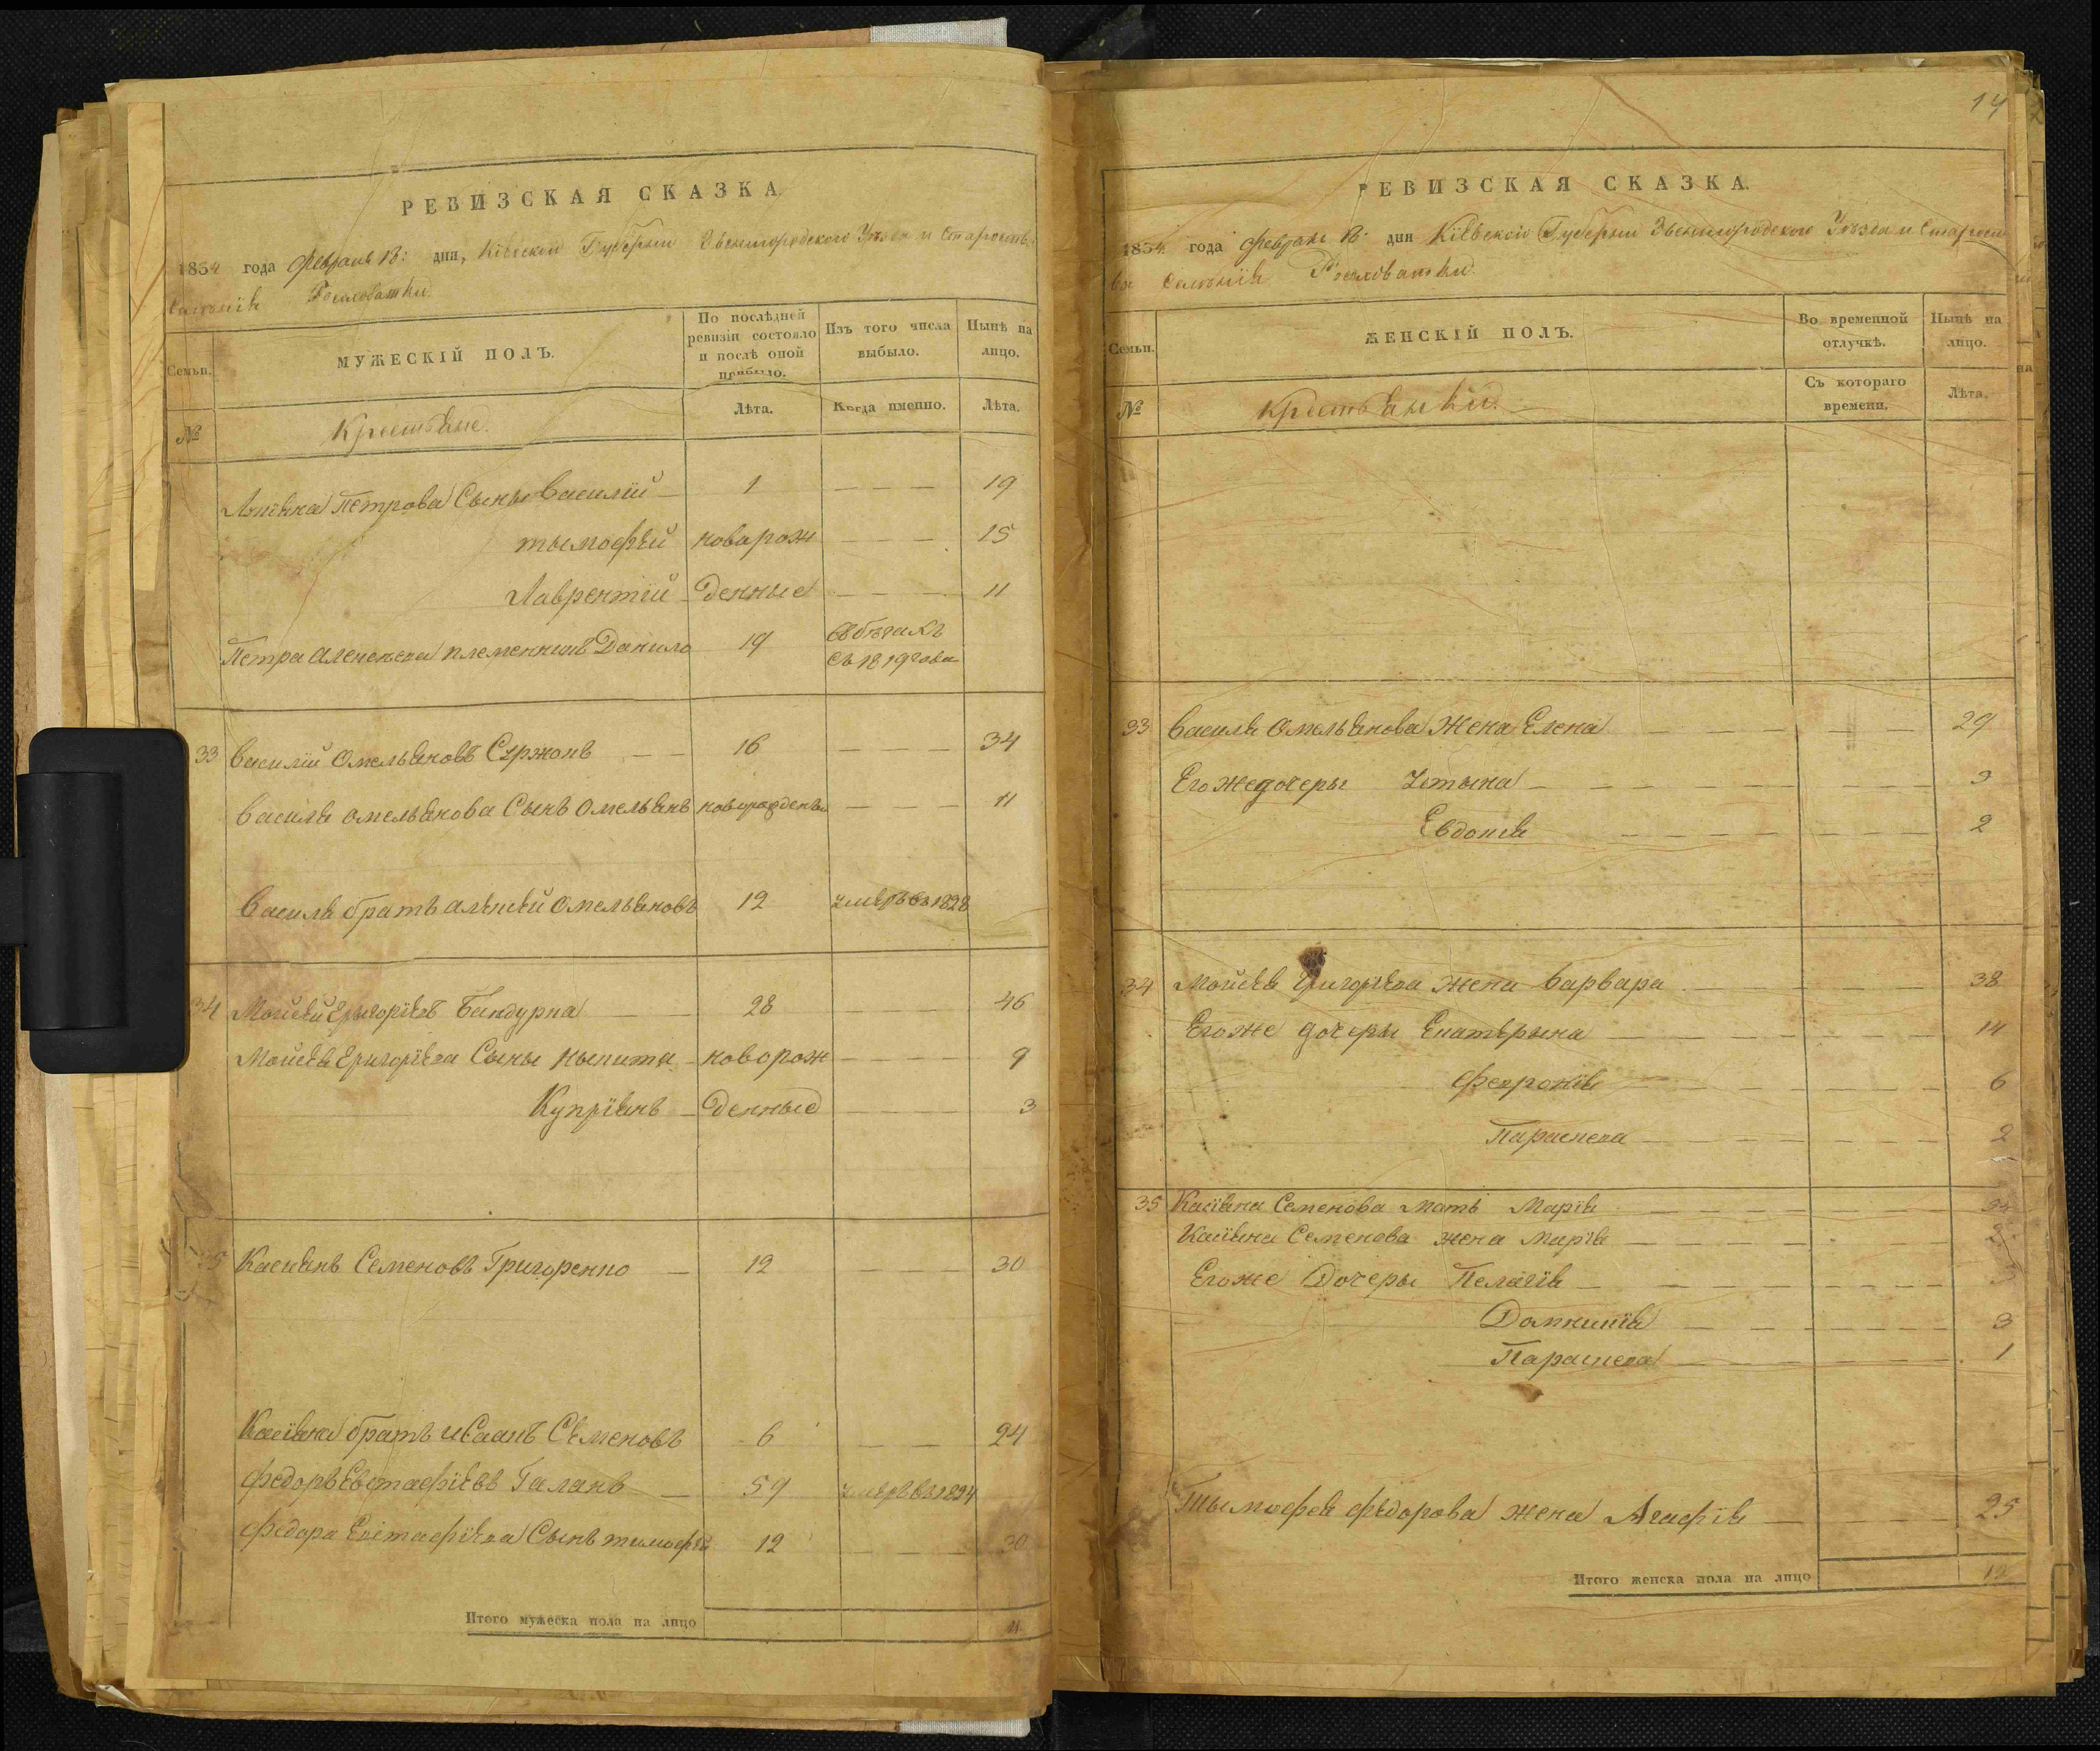 РЕВИЗСКАЯ СКАЗКА
1834 года февраля 18: дня, Кіевской Губерніи Звенигородского Уезда и Староства
Селенія
МУЖЕСКІЙ ПОЛЪ.
Семьи.
По послѣдней ревизіи состояло и послѣ оной прибыло.
Изъ того числа выбыло.
Нынѣ на лицо.
№
Крестьяне.
Лѣта.
Когда именно.
Лѣта.
Петрова Сыны Василій 1 — — — 19
тымофѣй новорож — — — 15
Лаврентій денные — — — 11
Петра племенникъ Данило 19 въ бѣгахъ
съ 1819 года
33 Василій Омельяновъ — — 16 — — — 34
Василя Омельянова Сынъ Омельянъ новорожденъ — — — 11
Василя братъ Омельяновъ 12 умеръ въ 1828
34 Мойсѣй Григоріевъ Бандурка — — 28 — — — 46
Мойсѣя Григоріева Сыны Никита новорож — — — 9
Купріянъ денные — — — 3
35 Касіянъ Семеновъ Григоренко — 12 — — — 30
Касіяна братъ Исаакъ Семеновъ 6 — — 24
Федоръ Евстафіевъ Галанъ — 59 умеръ въ 1824
Федора Евстафіева Сынъ тимофѣй 12 — — — 30
Итого мужеска пола на лицо 11
14
РЕВИЗСКАЯ СКАЗКА.
1834 года февраля 18: дня Кіевской Губерніи Звенигородского Уезда и Старост
ва Селенія
Семьи.
ЖЕНСКІЙ ПОЛЪ.
Во временной отлучкѣ.
Нынѣ на лицо.
№
Крестьянки.
Съ котораго времени.
Лѣта.
33 Василя Омельянова Жена Елена — — — 29
Его же дочеры Устына — — — 3
Евдокія — — — 2
34 Мойсѣя Григоріева жена Варвара — — — 38
Его же дочеры Екатерына — — — 14
Февронія — — — 6
Параскева — — — 2
35 Касіяна Семенова Мать Марія — — —
Касіяна Семенова жена Марія — — —
Его же Дочеры Пелагія — — —
Домникія — — — 3
Параскева — — — 1
Тымофея Федорова жена Агафія — — — 25
Итого женска пола на лицо 12